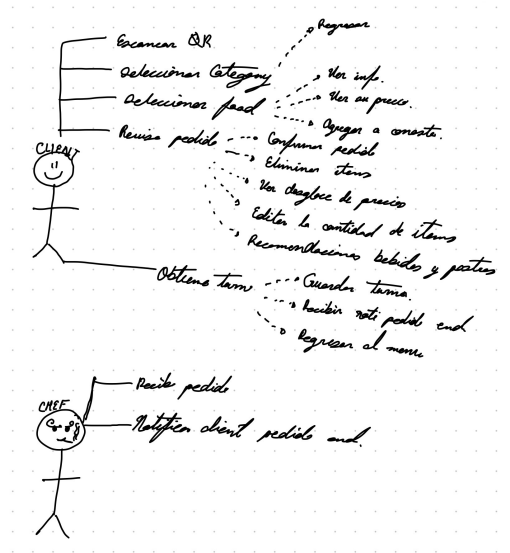 Regresar
Escanear QR
seleccionar Category
Ver info.
seleccionar food
Ver su precio.
Agregar a canasta.
CLIENT
Revisa pedido
Confirmar pedido
Eliminar items
Ver desgloce de precios
Editar la cantidad de items
Recomendaciones bebidas y postres
Obtiene turno
Guardar turno.
Recibir noti pedido end
Regresar al menu
CHEF
Recibe pedido
Notifica client pedido end.